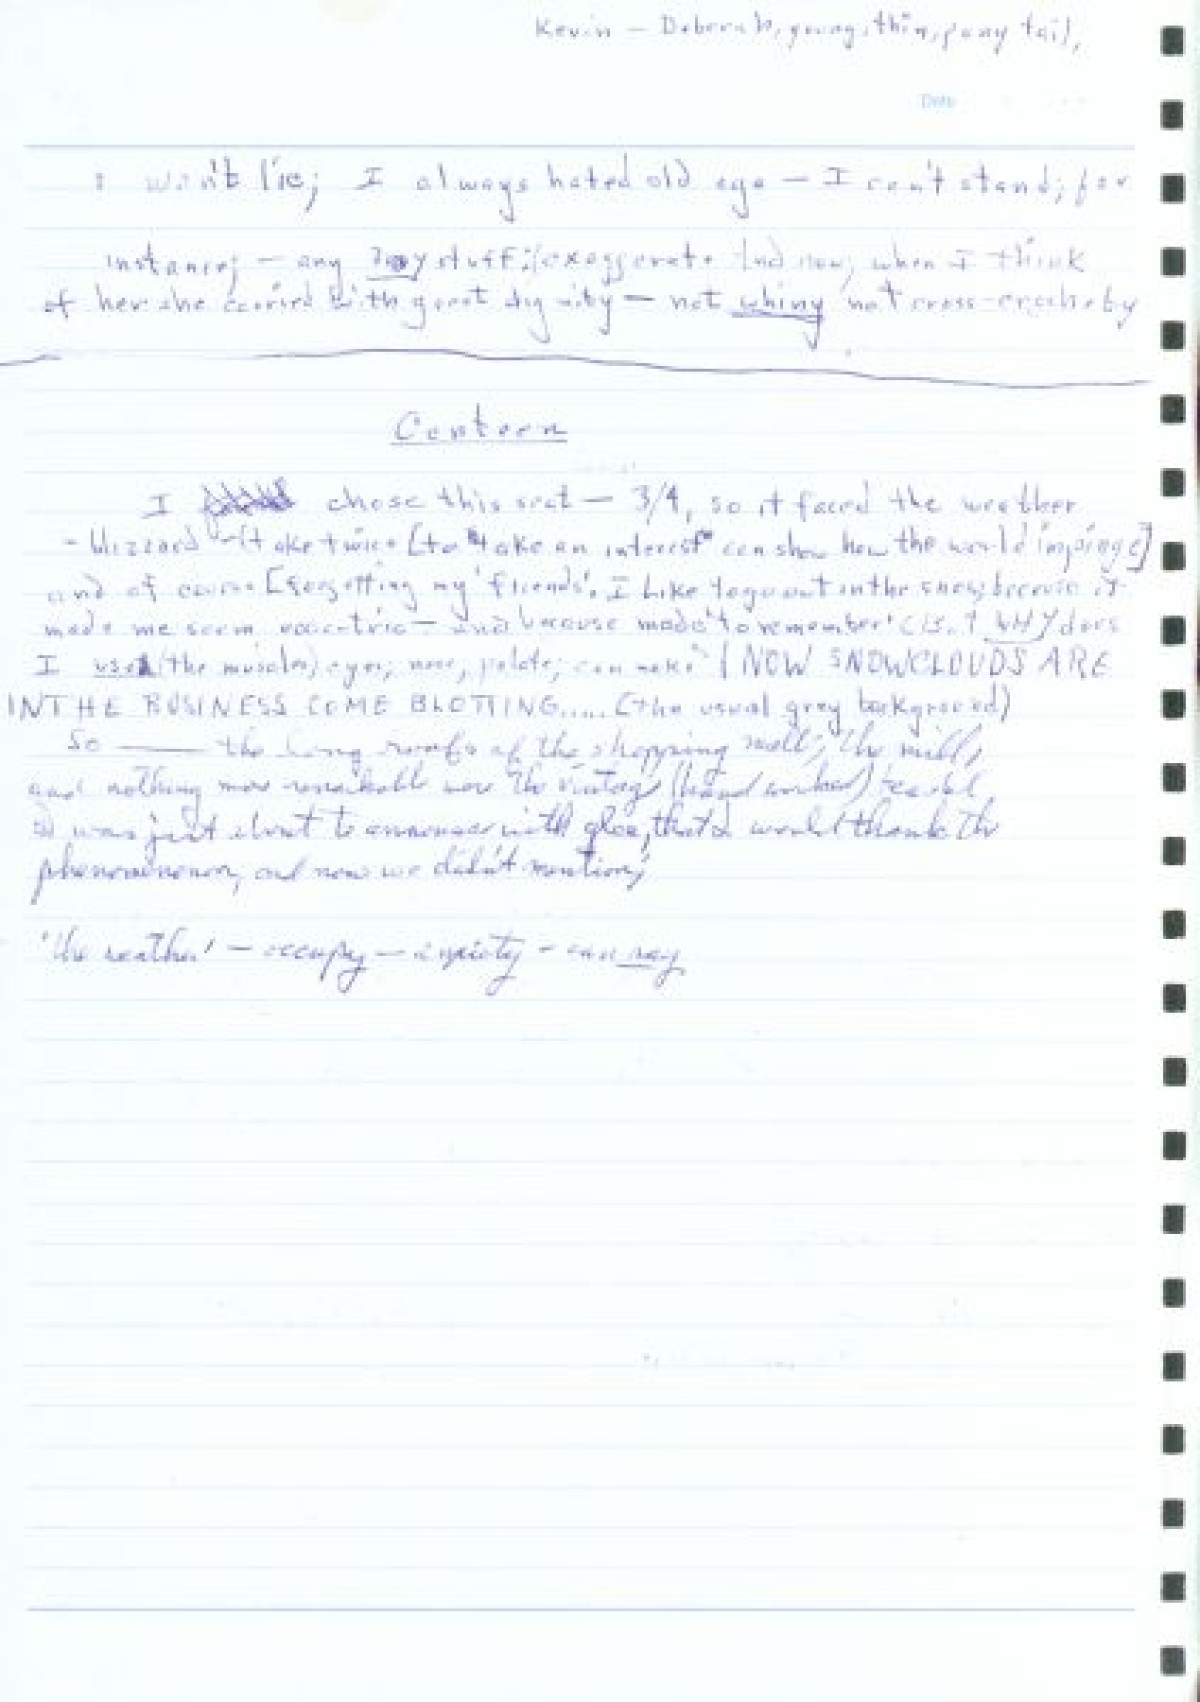 Kevin — Deborah, young, thin, pony tail,
Date
I won't lie; I always hated old age — I can't stand; for
instance; — any stuff; exaggerate And now, when I think
of her she carried with great dignity — not whiny not cross-crotchety
Canteen
I chose this seat — 3/4, so it faced the weather
- blizzard - (take twice [to "take an interest" can show how the world impinge]
and of course [forgetting my 'friends'. I like to go out in the snow, because it
made me seem eccentric — and because made 'to remember' WHY does
I used (the muscles) eyes; nose, palate; can make (NOW SNOWCLOUDS ARE
IN THE BUSINESS COME BLOTTING..... (the usual grey background)
So — the long roofs of the shopping mall; the mill,
and nothing more remarkable were the vintage (hand worked)
I was just about to announce with glee, that I would thank the
phenomenon, and now we didn't mention;
'the weather' — occupy — anxiety - can say